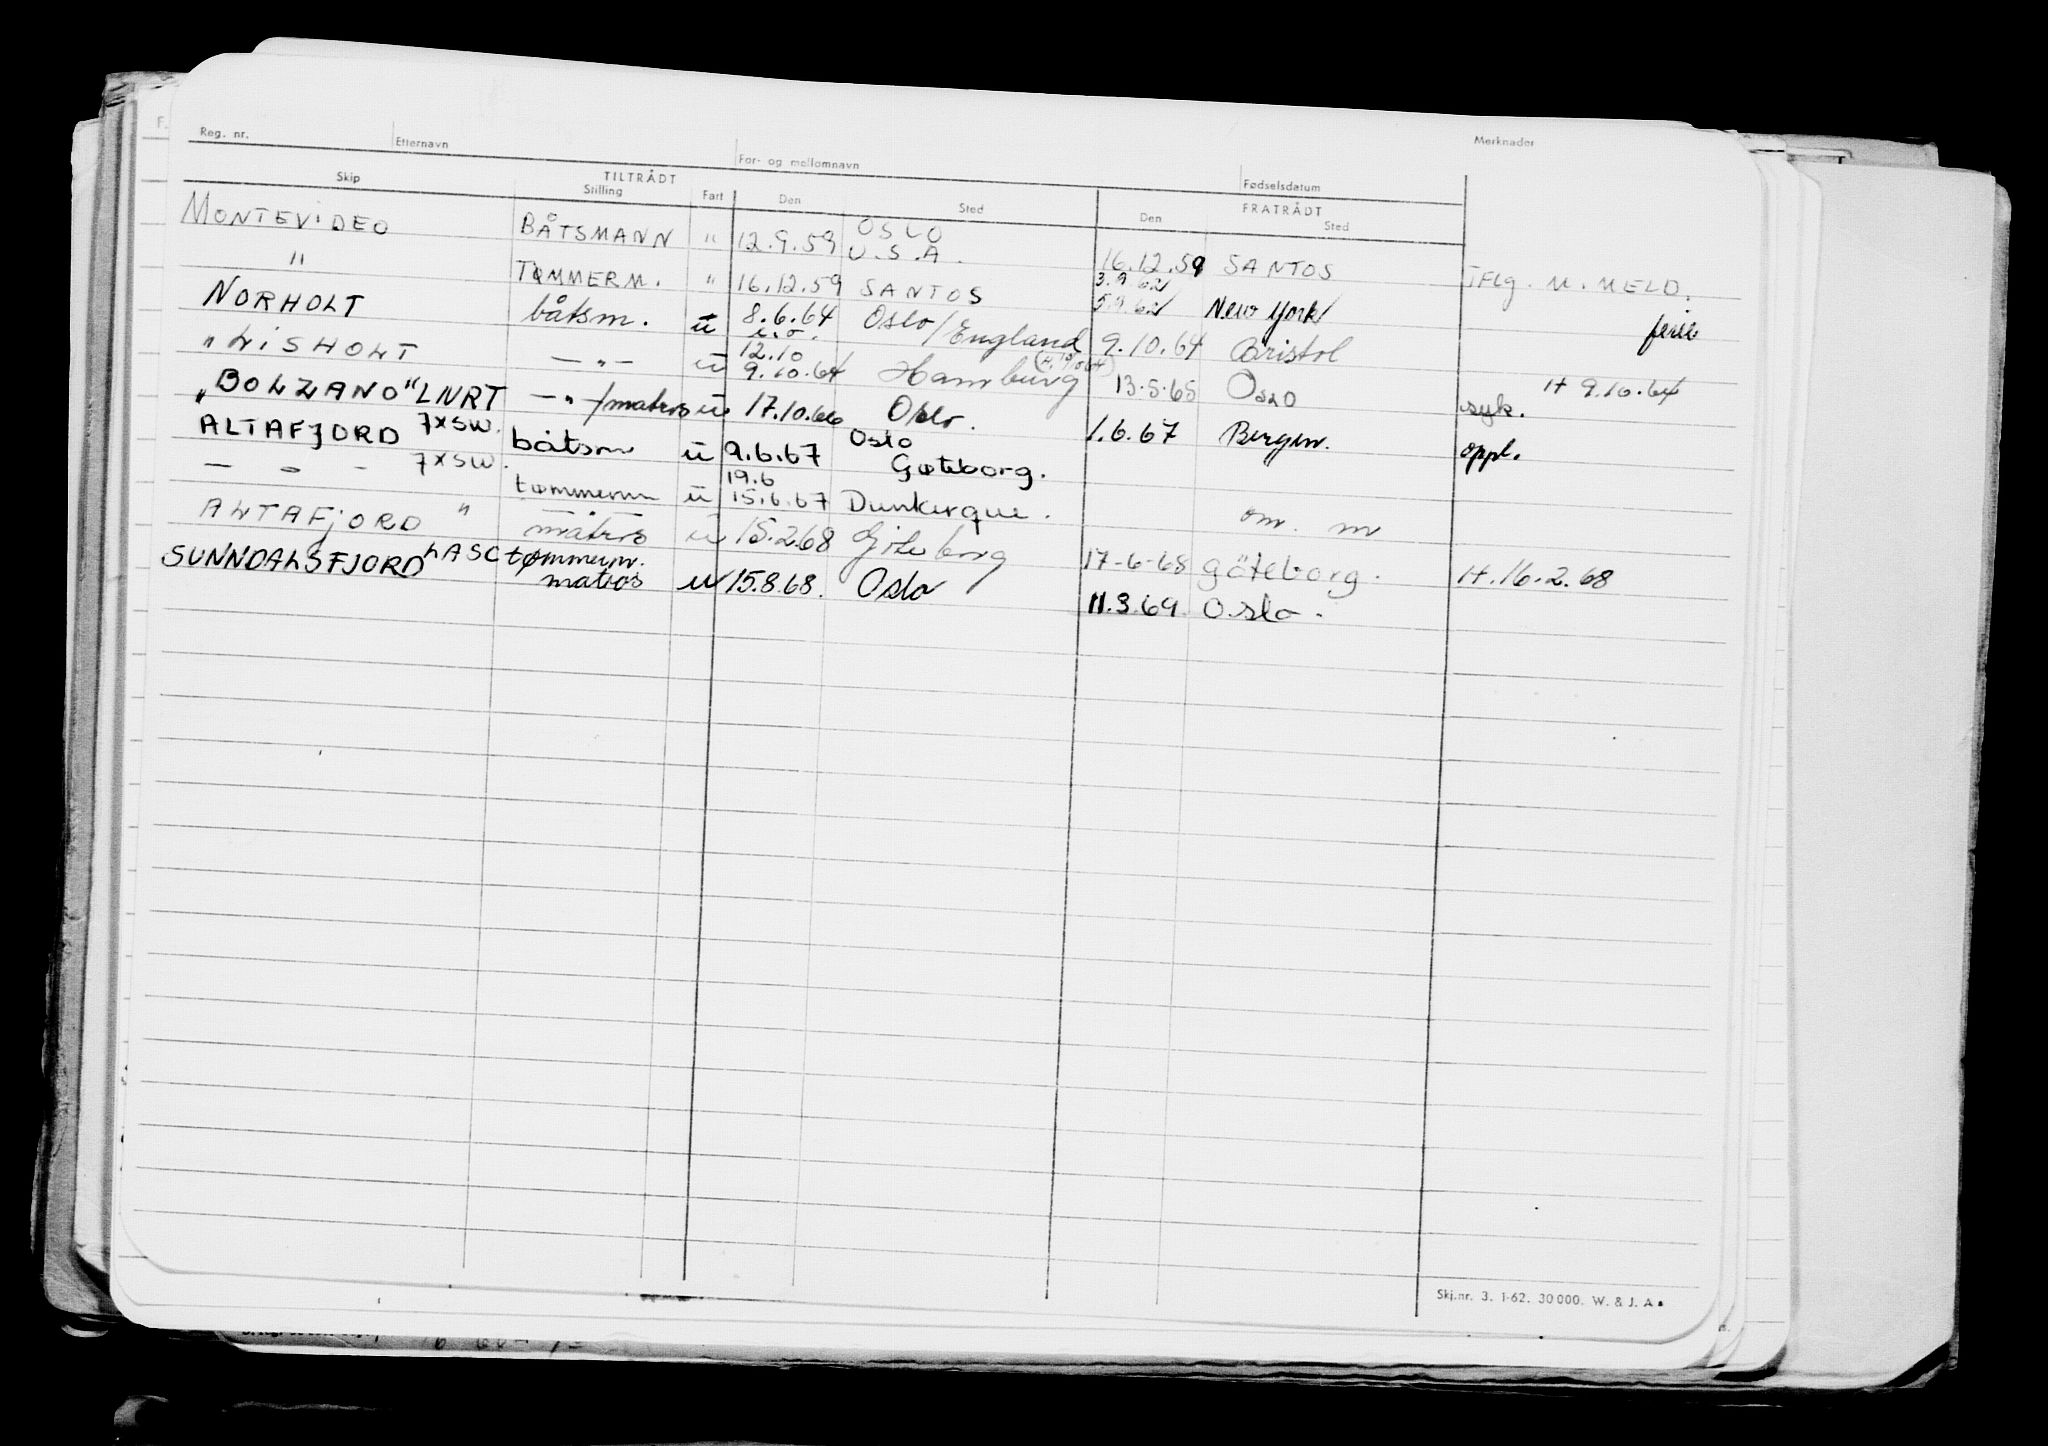 Reg. nr. Etternavn For- og mellomnavn Fødselsdatum Merknader
Skip TILTRÅDT Stilling Fart Den Sted FRATRÅDT Den Sted
MONTEVIDEO BÅTSMANN " 12.9.59 OSLO U.S.A. 16.12.59 SANTOS TFLG. M. MELD.
" TØMMERM. " 16.12.59 SANTOS 3.9.62 5.9.62 New York ferie
NORHOLT båtsm. u 8.6.64 Oslo/England 9.10.64 Bristol H 9.10.64
"LISHOLT —"— u 12.10 9.10.64 Hamburg 13-5-65 OSLO syk.
"BOLZANO" LNRT —"—/matros u 17.10.66 Oslo. 1.6.67 Bergen. oppl.
ALTAFJORD 7XSW. båtsm u 9.6.67 Oslo Gøteborg.
— " — 7XSW. tømmerm u 19.6 15.6.67 Dunkerque. om. m
ALTAFJORD " matros u 15.2.68 Göteborg 17-6-68 Göteborg. H.16.2.68
SUNNDALSFJORD LASC tømmerm. matros u 15.8.68. Oslo 11.3.69. Oslo.
Skj.nr. 3. 1-62. 30 000. W. & J. A.